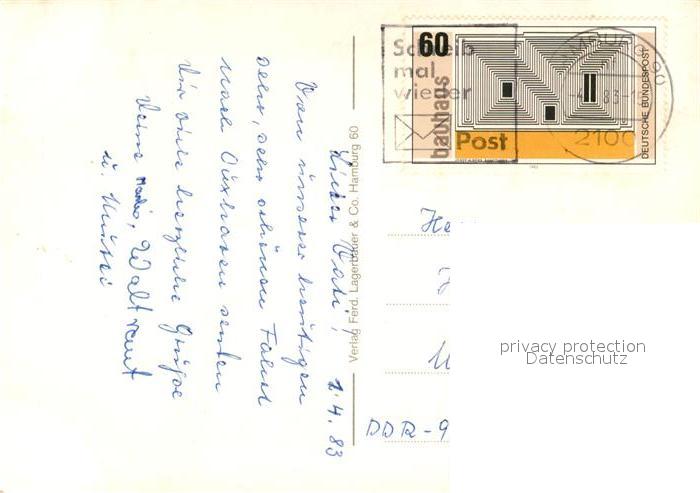 Schreib
mal
wieder
Post
60
bauhaus
DEUTSCHE BUNDESPOST
HAMBURG 90
83-1
2100
Verlag Ferd. Lagerbauer & Co. Hamburg 60
1.4.83
Lieber Vati!
Von unserer heutigen
sehr, sehr schönen Fahrt
nach Cuxhaven senden
Dir viele herzliche Grüße
Deine Waltraut
u.
He
DDR-9
privacy protection
Datenschutz